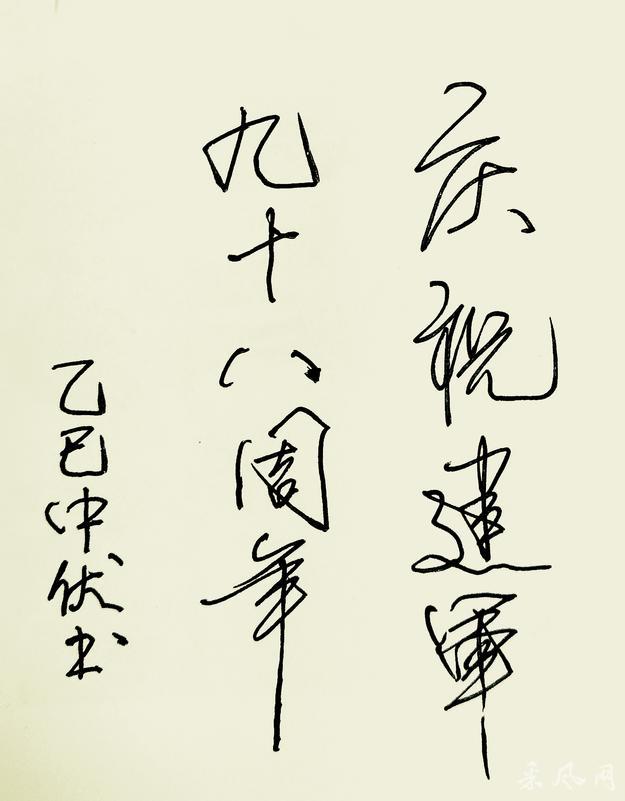 庆祝建軍
九十八周年
乙巳仲伏书
采风网